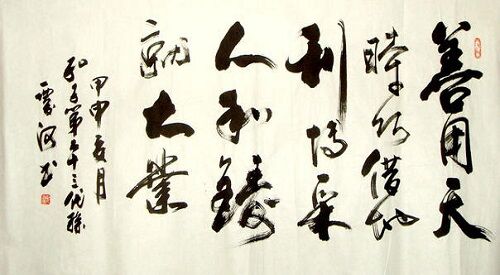 善用天
時巧借地
利博采
人和鑄
就大業
甲申夏月
孔子第十三代孫
书